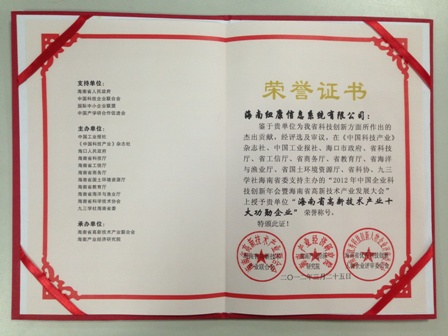 支持单位：
海南省人民政府
中国科技企业联合会
国际中小企业联盟
中国产学研合作促进会
主办单位：
中国工业报社
《中国科技产业》杂志社
海口人民政府
海南省科技厅
海南省工信厅
海南省商务厅
海南省国土环境资源厅
海南省教育厅
海南省海洋与渔业厅
海南省科学技术协会
九三学社海南省委
承办单位：
海南省高新技术产业联合会
海南产业经济研究院
荣誉证书
海南红康信息系统有限公司：
鉴于贵单位为我省科技创新方面所作出的
杰出贡献，经评选及审议，在《中国科技产业》
杂志社、中国工业报社、海口市政府、省科技
厅、省工信厅、省商务厅、省教育厅、省海洋
与渔业厅、省国土环境资源厅、省科协、九三
学社海南省委支持主办的“2012年中国企业科
技创新年会暨海南省高新技术产业发展大会”
上授予贵单位“海南省高新技术产业十
大功勋企业”荣誉称号。
特颁此证！
二〇一二年三月二十五日